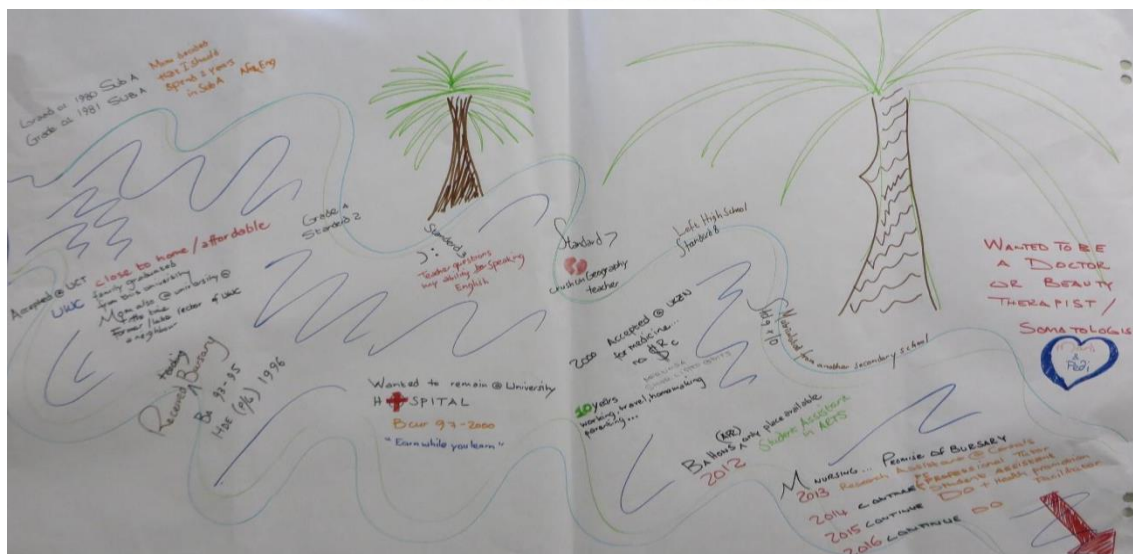 1980 Sub A
Grade 01 1981 SUB A
Mom decided
that I should
spend 2 years
in Sub A
Grade 4
Standard 2
Standard 5
Teacher questions
my ability for speaking
English
Standard 7
crush on Geography
teacher
Left High School
Standard 8
Std 9 & 10
Matriculated from another secondary school
WANTED TO BE
A DOCTOR
OR BEAUTY
THERAPIST/
SOMATOLOGIS
& PEDI
Accepted @ UCT
UWC
close to home / affordable
family graduated
from this university
Mom also @ university @
the time
Former / late rector of UWC
a neighbour
Received Bursary
Ba 92-95
HDE (P/G) 1996
Wanted to remain @ University
H SPITAL
Bcur 97-2000
"Earn while you learn"
2000 Accepted @ UKZN
for medicine...
no $Rc
10 years
working, travel, homemaking
parenting...
BA HONS only place available
2012
Student Assistant
in AEPS
M NURSING... PROMISE OF BURSARY
2013 Research
2014
2015 CONTINUE DO
2016 CONTINUE